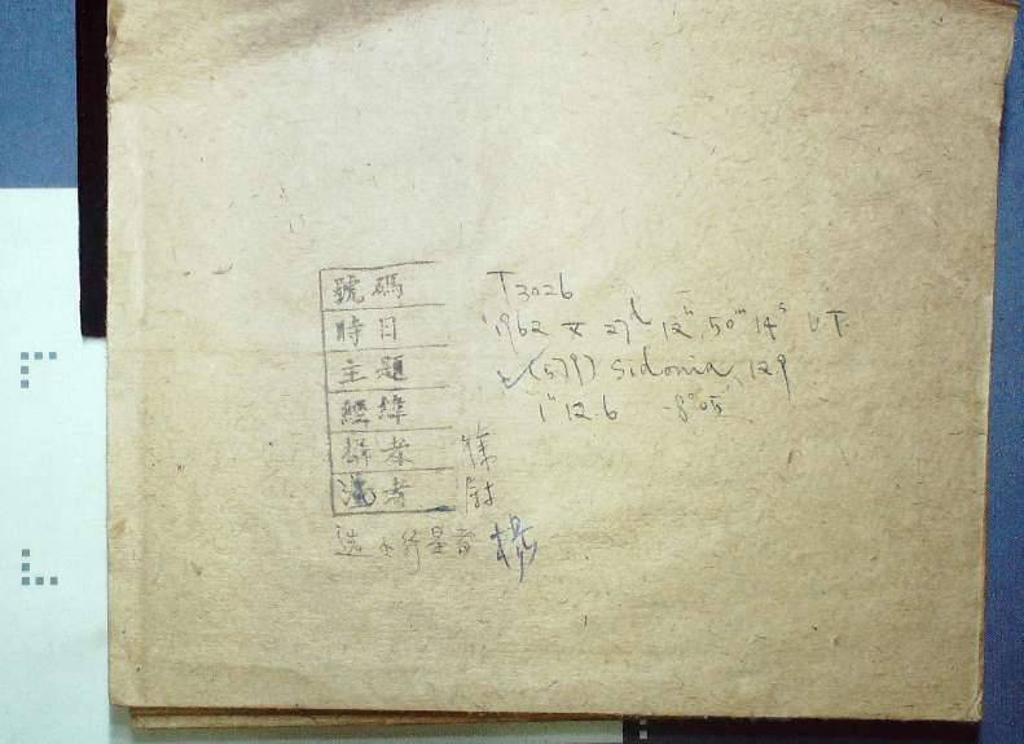 號碼 T3026
時日 1962 X 27d 12h 50m 14s U.T.
主題 (579) Sidonia 12.9
經緯 1h 12.6 -8°05'
者 徐
者
选小行星者 楊